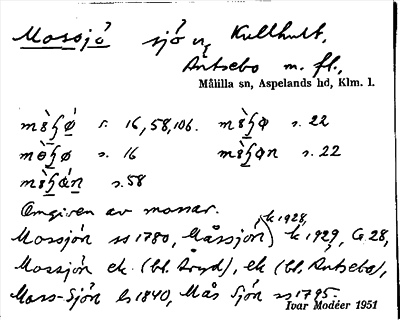 Mossjö sjö vid Kullhult,
Äntsebo m. fl.,
Målilla sn, Aspelands hd, Klm. l.
s. 16, 58, 106. s. 22
s. 16 s. 22
s. 58
Omgiven av mossar.
k 1928,
Mossjön ss 1780, Måssjön k 1929, G. 28,
Mossjön ek. (bl. Äryd), ek (bl. Äntsebo),
Moss-Sjön ls 1840, Mås Sjön ss 1795.
Ivar Modéer 1951